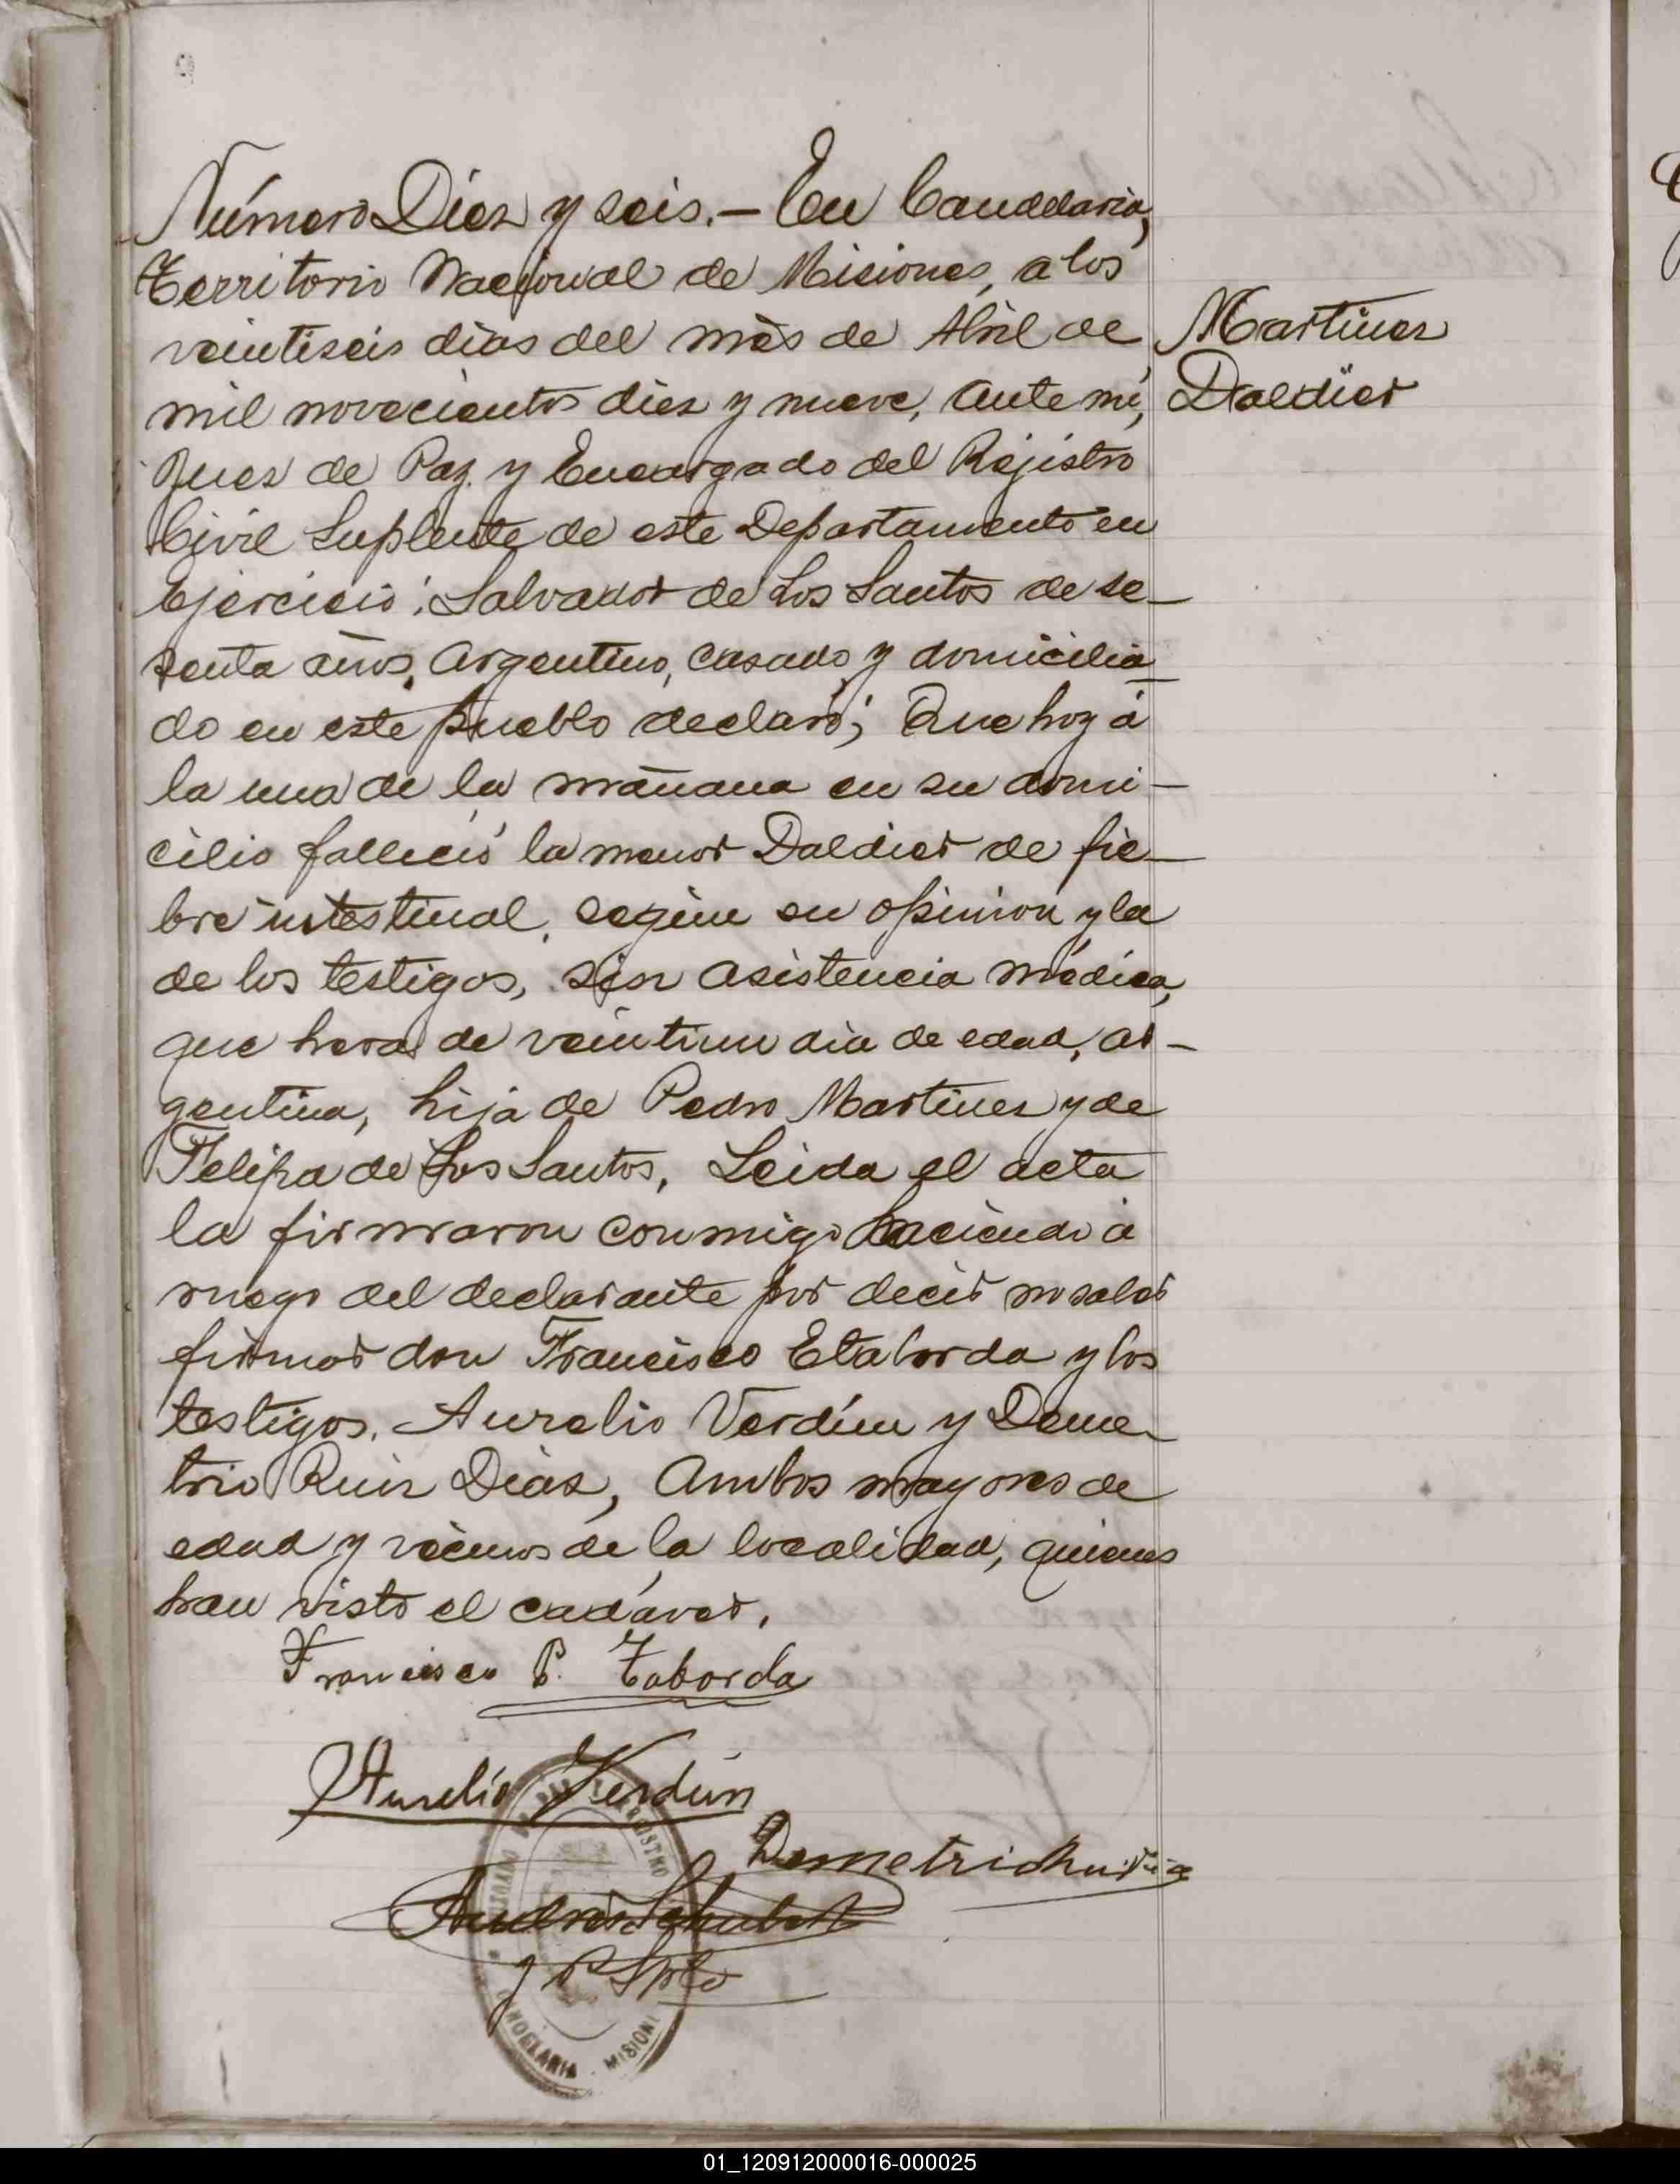 Número Diez y seis.- En Candelaria,
Territorio Nacional de Misiones, a los
veintiseis dias del mès de Abril de
Martinez
mil novecientos diez y nueve, Ante mí,
Daldier
Juez de Paz y Encargado del Rejistro
Civil Suplente de este Departamento en
Ejercicio; Salvador de Los Santos de se-
senta años, Argentino, casado y domicilia-
do en este pueblo declaró; Que hoy á
la una de la mañana en su domi-
cilio falleció la menor Daldier de fie-
bre intestinal, según su opinion y la
de los testigos, sin asistencia médica,
que hera de veintiun dia de edad, ar-
gentina, hija de Pedro Martinez y de
Felipa de Los Santos, Leida el acta
la firmaron conmigo haciendo á
ruego del declarante por decir no saber
firmar don Francisco Etaborda y los
testigos, Aurelio Verdún y Deme-
trio Ruiz Diaz, Ambos mayores de
edad y vècinos de la localidad, quienes
han visto el cadáver.
Francisco P. Taborda
Aurelio Verdún
Demetrio Rui Dia
J P Splte
CANDELARIA - MISIONE
01_120912000016-000025